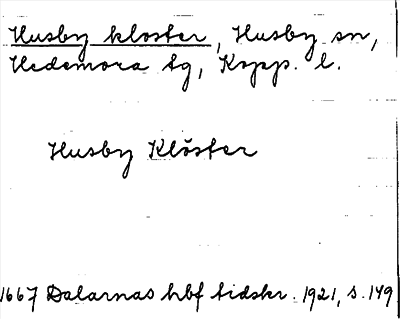 Husby kloster, Husby sn,
Hedemora tg, Kopp. l.
Husby Klöster
1667 Dalarnas hbf tidskr. 1921, s. 149